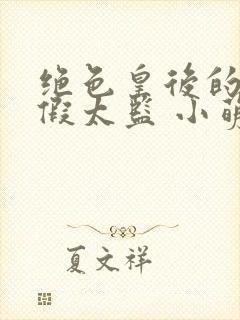 绝色皇后的
假太监 小萌
夏文祥